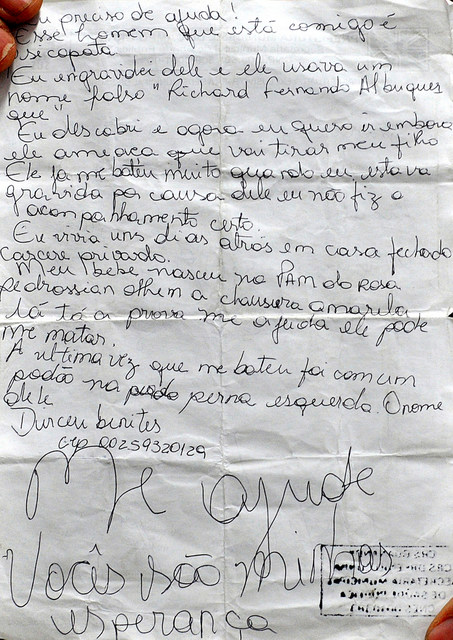 Eu preciso de ajuda!
Esse homem que está comigo é
sicopata
Eu engravidei dele e ele usava um
nome falso "Richard Fernando Albuquer
que"
Eu descobri e agora eu quero ir embora
ele ameaça que vai tirar meu filho
Ele ja me bateu muito quando eu estava
gravida por causa dele eu não fiz o
acompanhamento certo.
Eu vivia uns dias atrás em casa fechado
carcere privado.
Meu bebe nasceu no PAM do Rosa
Pedrossian olhem a amarela
lá tá a prova me ajuda ele pode
me matar.
A ultima vez que me bateu foi com um
podão na perna esquerda. O nome
dele
Dirceu benites
00259320129
Me ajude
Vocês são minhas
esperança